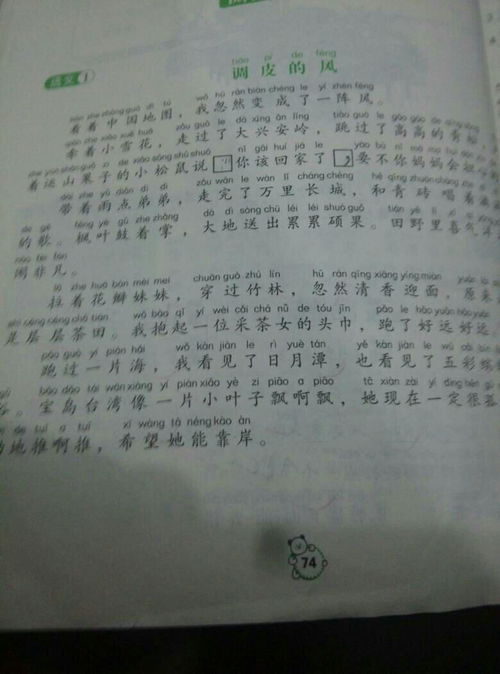 语文1
tiáo pí de fēng
调皮的风
kàn zhe zhōng guó dì tú wǒ hū rán biàn chéng le yí zhèn fēng
看着中国地图，我忽然变成了一阵风。
qiān zhe xiǎo xuě huā zǒu guò le dà xīng ān lǐng tiào guò le gāo gāo de
牵着小雪花，走过了大兴安岭，跳过了高高的青松，
zhe yùn shān guǒ zi de xiǎo sōng shǔ shuō nǐ gāi huí jiā le yào bù nǐ mā ma huì
着运山果子的小松鼠说□你该回家了□要不你妈妈会
dài zhe yǔ diǎn dì di zǒu wán le wàn lǐ cháng chéng hé qīng zhuān chàng
带着雨点弟弟，走完了万里长城，和青砖唱着
de gē fēng yè gǔ zhe zhǎng dà dì sòng chū léi léi shuò guǒ tián yě lǐ xǐ qì
的歌。枫叶鼓着掌，大地送出累累硕果。田野里喜气
nào fēi fán
闹非凡。
lā zhe huā bàn mèi mei chuān guò zhú lín hū rán qīng xiāng yíng miàn yuán
拉着花瓣妹妹，穿过竹林，忽然清香迎面，原来
shì céng céng chá tián wǒ bào qǐ yí wèi cǎi chá nǚ de tóu jīn pǎo le hǎo yuǎn hǎo yuǎn
是层层茶田。我抱起一位采茶女的头巾，跑了好远好远
pǎo guò yí piàn hǎi wǒ kàn jiàn le rì yuè tán yě kàn jiàn le wǔ cǎi
跑过一片海，我看见了日月潭，也看见了五彩
bǎo dǎo tái wān xiàng yí piàn xiǎo yè zi piāo a piāo tā xiàn zài yí dìng hěn gū
。宝岛台湾像一片小叶子飘啊飘，她现在一定很孤
de tuī a tuī xī wàng tā néng kào àn
地推啊推，希望她能靠岸。
74